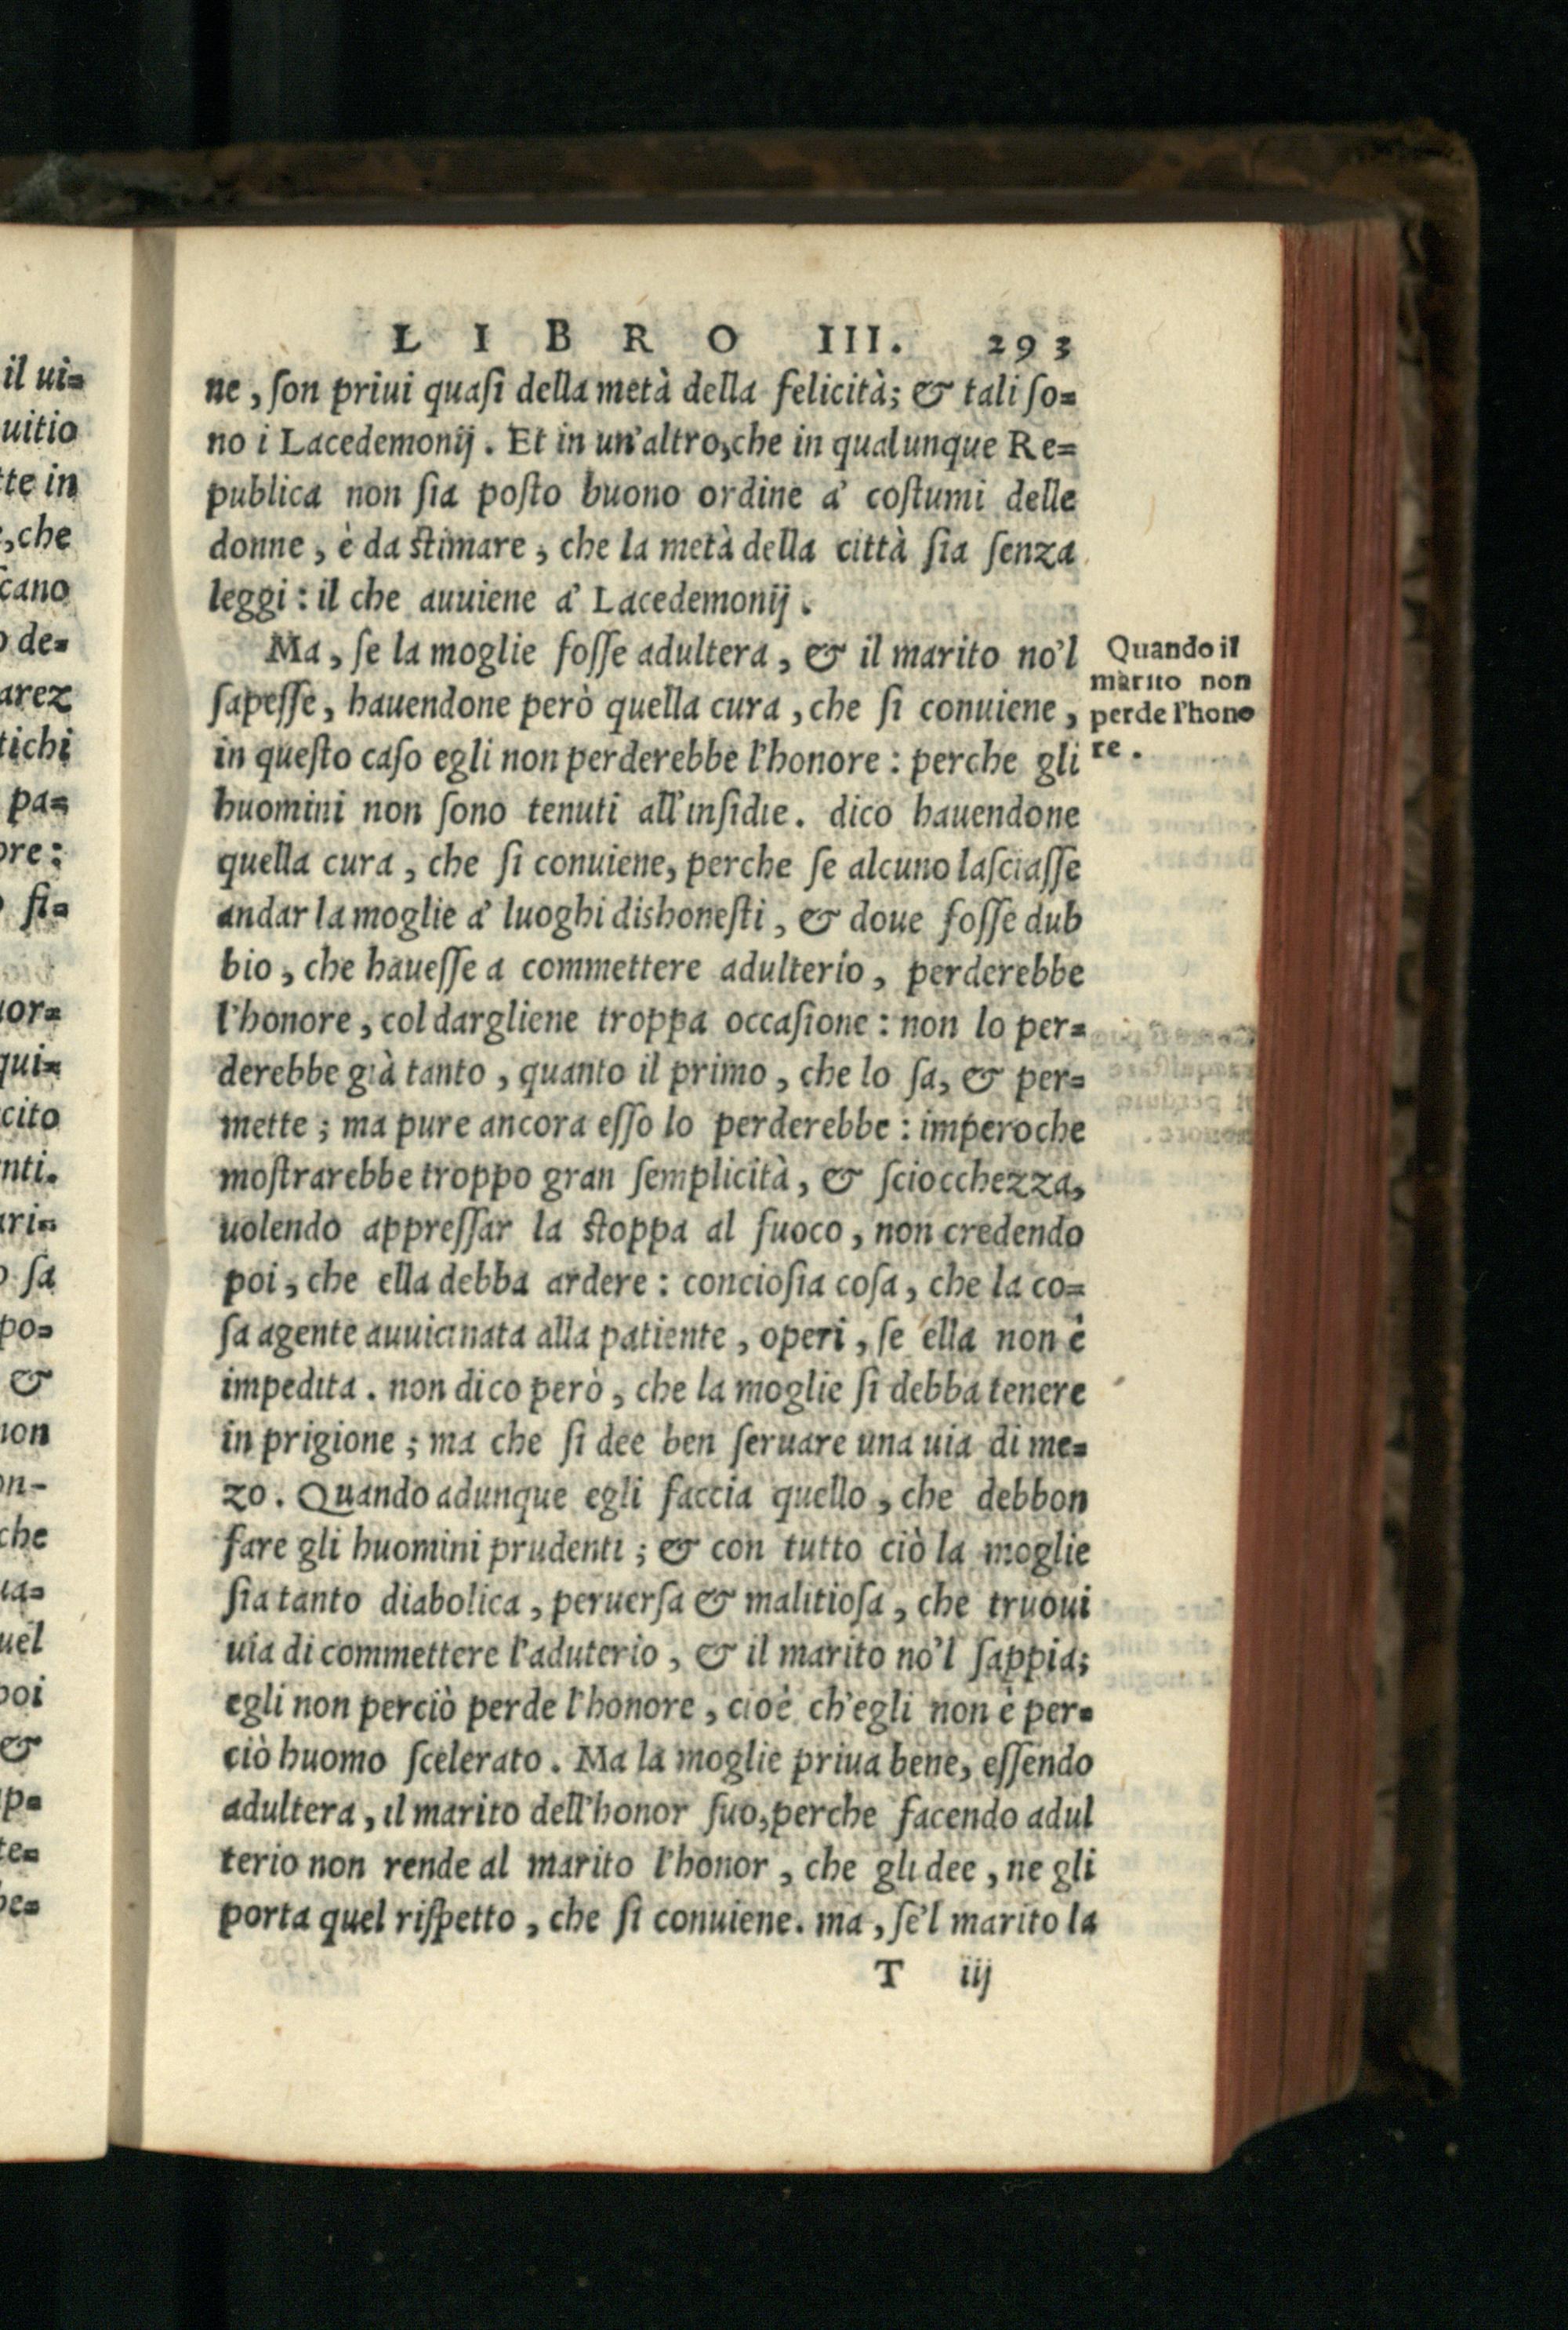 LIBRO III. 293
ne, ſon priui quaſi della metà della felicità; & tali ſo=
no i Lacedemonij. Et in un'altro, che in qualunque Re=
publica non ſia poſto buono ordine a' coſtumi delle
donne, è da ſtimare, che la metà della città ſia ſenza
leggi: il che auuiene a' Lacedemonij.
Ma, ſe la moglie foſſe adultera, & il marito no'l
ſapeſſe, hauendone però quella cura, che ſi conuiene,
in queſto caſo egli non perderebbe l'honore: perche gli
huomini non ſono tenuti all'inſidie. dico hauendone
quella cura, che ſi conuiene, perche ſe alcuno laſciaſſe
andar la moglie a' luoghi dishoneſti, & doue foſſe dub
bio, che haueſſe a commettere adulterio, perderebbe
l'honore, col dargliene troppa occaſione: non lo per=
derebbe già tanto, quanto il primo, che lo ſa, & per=
mette; ma pure ancora eſſo lo perderebbe: imperoche
moſtrarebbe troppo gran ſemplicità, & ſciocchezza,
uolendo appreſſar la ſtoppa al fuoco, non credendo
poi, che ella debba ardere: concioſia coſa, che la co=
ſa agente auuicinata alla patiente, operi, ſe ella non è
impedita. non dico però, che la moglie ſi debba tenere
in prigione; ma che ſi dee ben ſeruare una uia di me=
zo. Quando adunque egli faccia quello, che debbon
fare gli huomini prudenti; & con tutto ciò la moglie
ſia tanto diabolica, peruerſa & malitioſa, che truoui
uia di commettere l'aduterio, & il marito no'l ſappia;
egli non perciò perde l'honore, cioè ch'egli non è per=
ciò huomo ſcelerato. Ma la moglie priua bene, eſſendo
adultera, il marito dell'honor ſuo, perche facendo adul
terio non rende al marito l'honor, che gli dee, ne gli
porta quel riſpetto, che ſi conuiene. ma, ſe'l marito la
T iij
Quando il
marito non
perde l'hono
re.
il ui=
uitio
te in
, che
ſcano
o de=
arez
tichi
pa=
ore:
ſi=
uor=
qui=
cito
nti.
ari=
o ſa
po=
&
non
on-
che
ua=
uel
poi
&
ap=
te=
be=